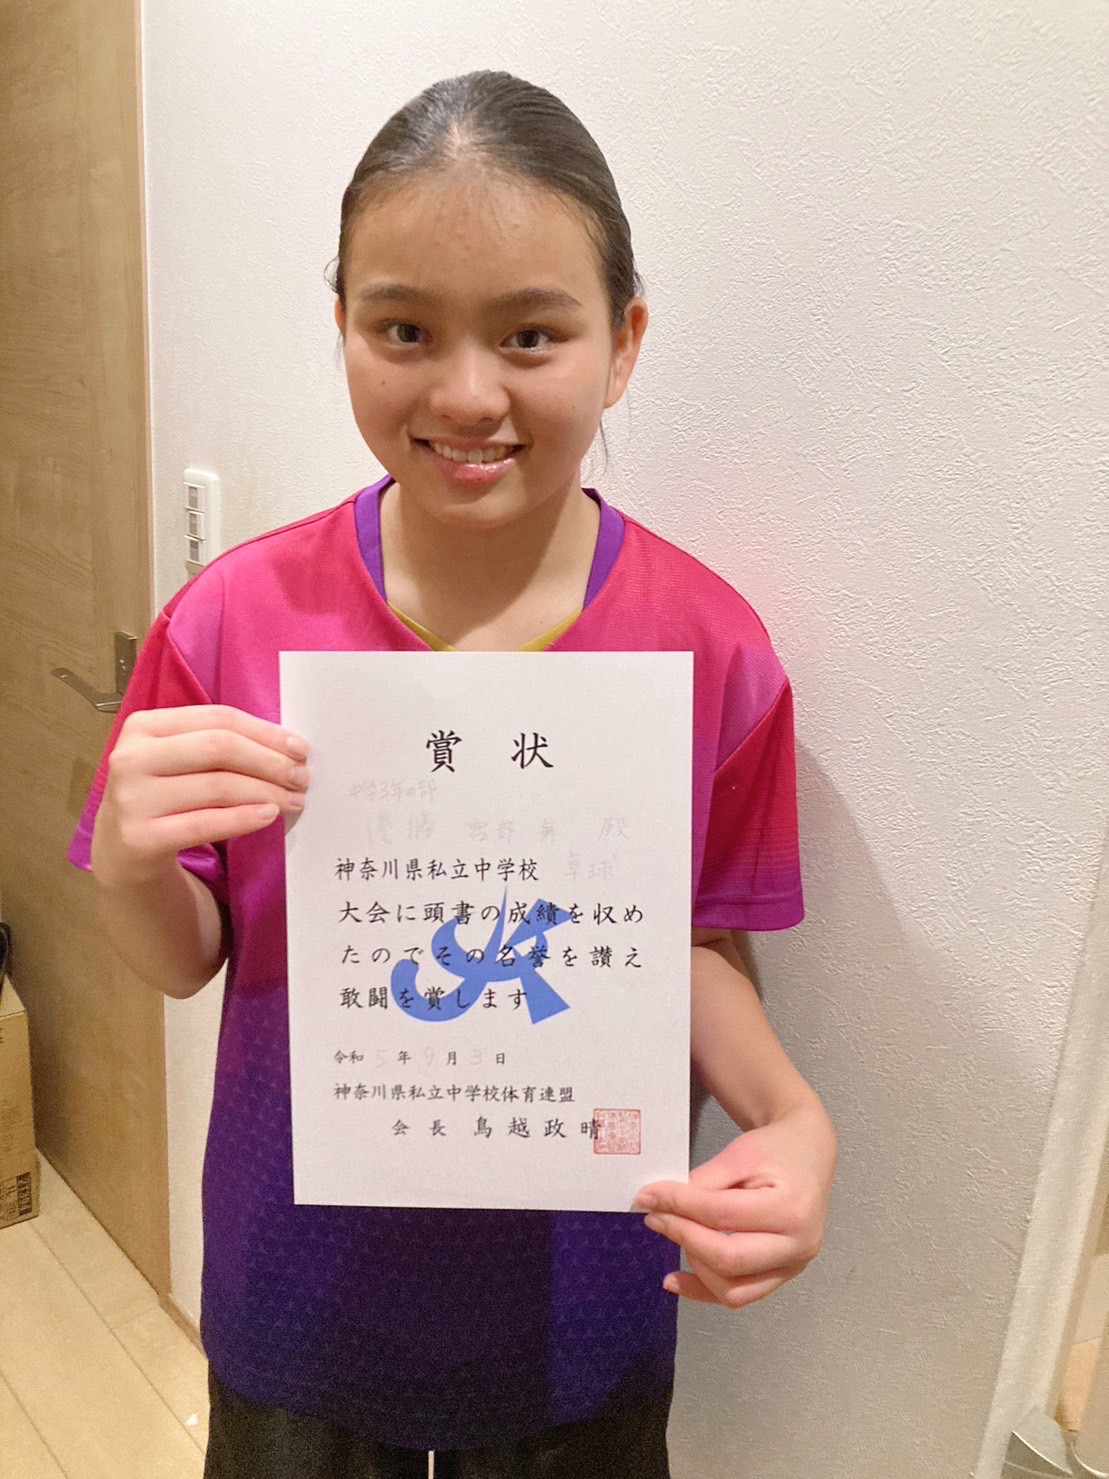 賞 状
中学3年の部
優勝 宮部 舞 殿
神奈川県私立中学校 卓球
大会に頭書の成績を収め
たのでその名誉を讃え
敢闘を賞します
令和 5 年 9 月 3 日
神奈川県私立中学校体育連盟
会長 鳥越政晴